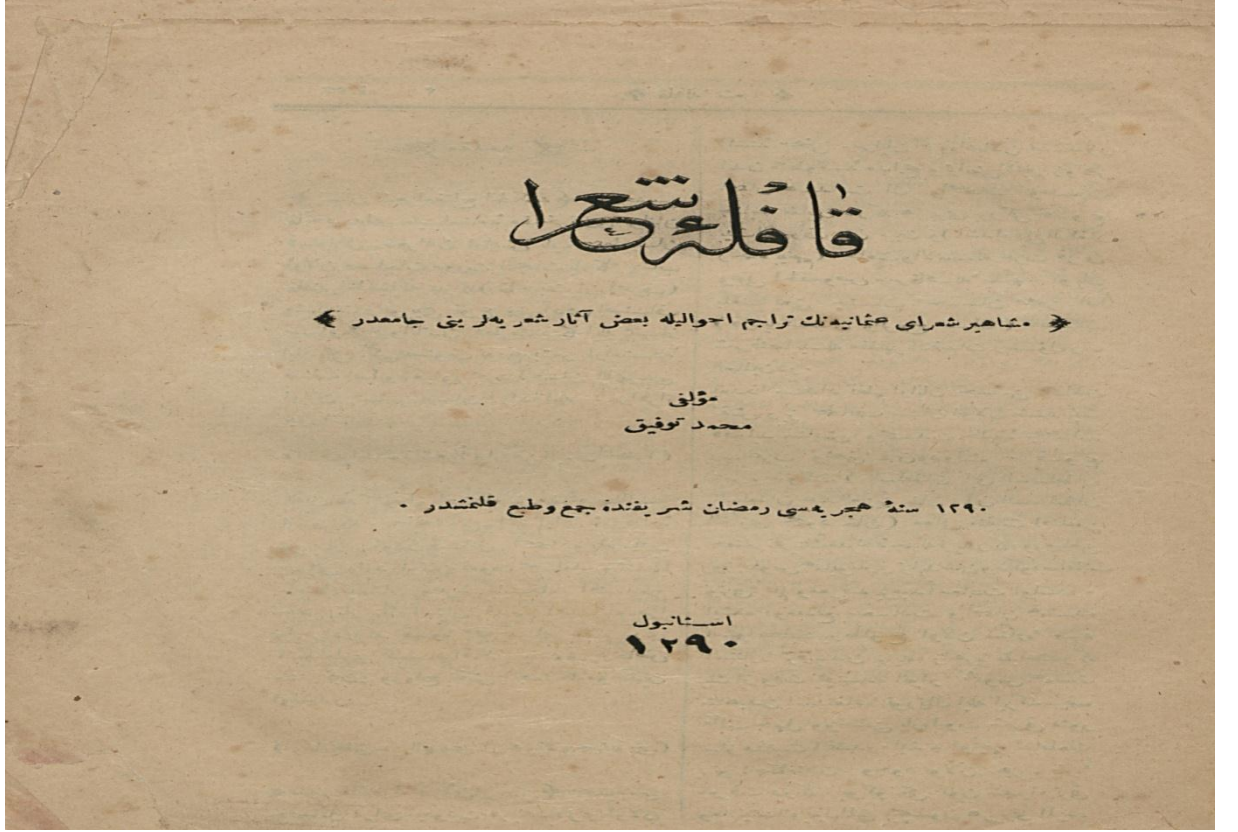 قافلۀ شعرا
مشاهیر شعرای عثمانیه‌نك تراجم احوالیله بعض آثار شعریه‌لرینی جامعدر
مؤلفی
محمد توفیق
١٢٩٠ سنۀ هجریه‌سی رمضان شریفنده جمع وطبع قلنمشدر .
استانبول
١٢٩٠